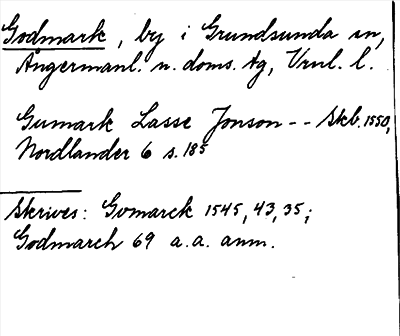 Godmark, by i Grundsunda sn,
Ångermanl. n. doms. tg, Vrnl. l.
Gumark Lasse Jonson -- Skb. 1550,
Nordlander 6 s. 185
Skrives: Gomarck 1545, 43, 35;
Godmarch 69 a.a. anm.